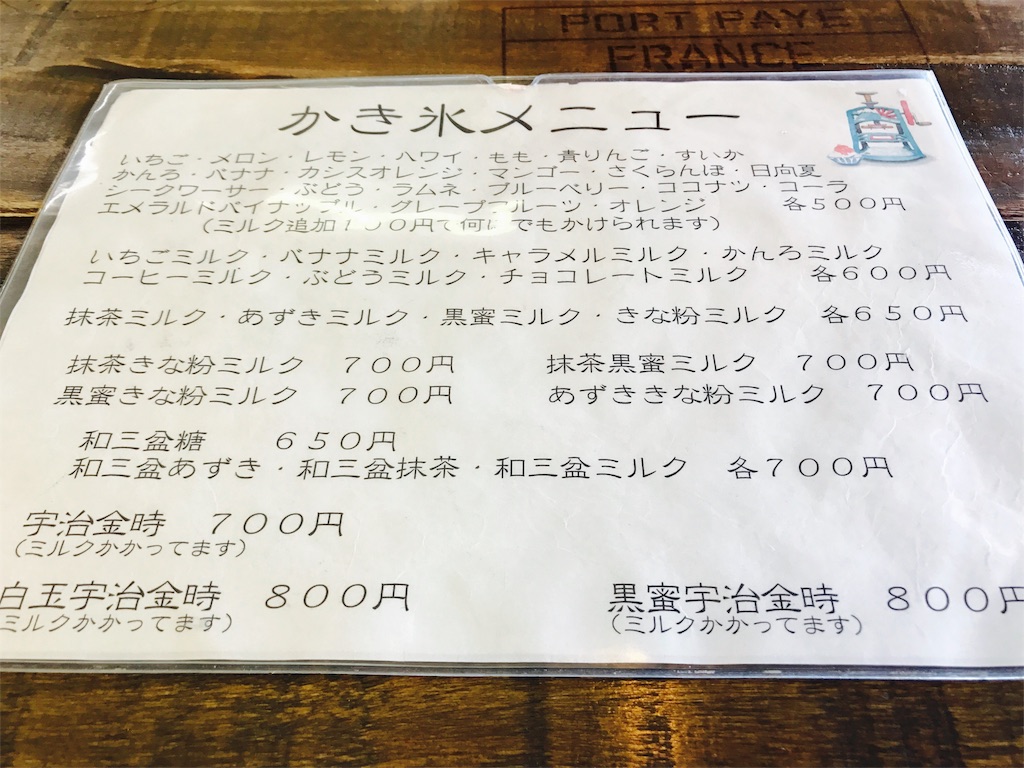 PORT PAYE
FRANCE
かき氷メニュー
いちご・メロン・レモン・ハワイ・もも・青りんご・すいか
かんろ・バナナ・カシスオレンジ・マンゴー・さくらんぼ・日向夏
シークワーサー・ぶどう・ラムネ・ブルーベリー・ココナツ・コーラ
エメラルドパイナップル・グレープフルーツ・オレンジ 各500円
(ミルク追加100円で何にでもかけられます)
いちごミルク・バナナミルク・キャラメルミルク・かんろミルク
コーヒーミルク・ぶどうミルク・チョコレートミルク 各600円
抹茶ミルク・あずきミルク・黒蜜ミルク・きな粉ミルク 各650円
抹茶きな粉ミルク 700円 抹茶黒蜜ミルク 700円
黒蜜きな粉ミルク 700円 あずききな粉ミルク 700円
和三盆糖 650円
和三盆あずき・和三盆抹茶・和三盆ミルク 各700円
宇治金時 700円
(ミルクかかってます)
白玉宇治金時 800円 黒蜜宇治金時 800円
ミルクかかってます) (ミルクかかってます)